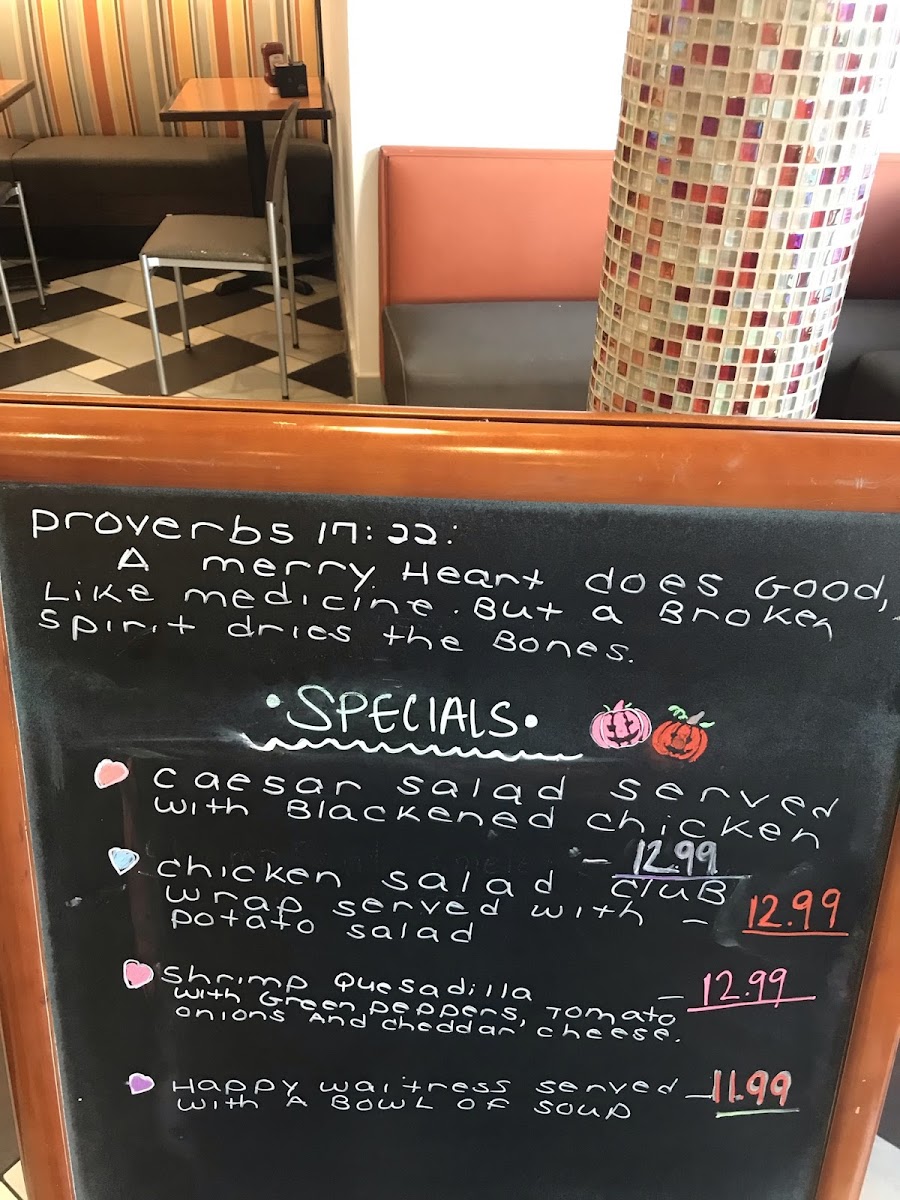 proverbs 17:22:
A merry Heart does Good,
Like medicine. But a Broken
spirit dries the Bones.
·SPECIALS·
caesar salad served
with Blackened chicken
- 12.99
chicken salad cluB
wrap served with - 12.99
potato salad
shrimp Quesadilla - 12.99
with Green peppers, Tomato
onions And cheddar cheese.
Happy waitress served - 11.99
with A Bowl of soup